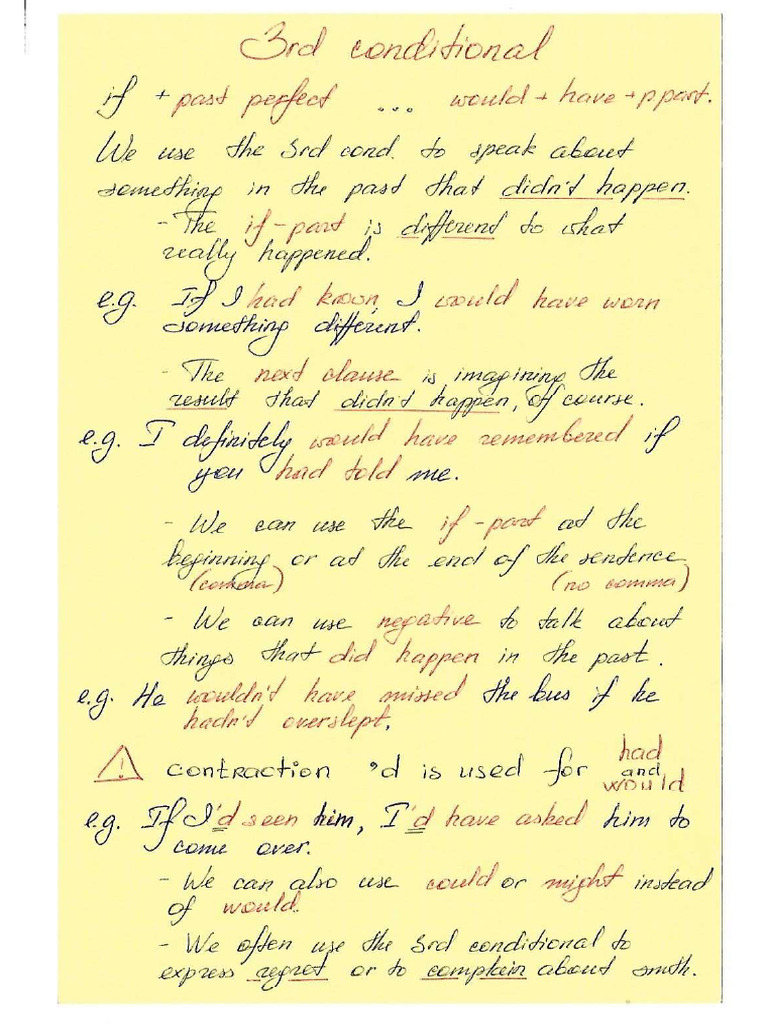 3rd conditional
if + past perfect ... would + have + p.part.
We use the 3rd cond. to speak about
something in the past that didn't happen.
- The if-part is different to what
really happened.
e.g. If I had known, I would have worn
something different.
- The next clause is imagining the
result that didn't happen, of course.
e.g. I definitely would have remembered if
you had told me.
- We can use the if-part at the
beginning or at the end of the sentence
(comma) (no comma)
- We can use negative to talk about
things that did happen in the past.
e.g. He wouldn't have missed the bus if he
hadn't overslept.
! contraction 'd is used for had and would
e.g. If I'd seen him, I'd have asked him to
come over.
- We can also use could or might instead
of would.
- We often use the 3rd conditional to
express regret or to complain about smth.